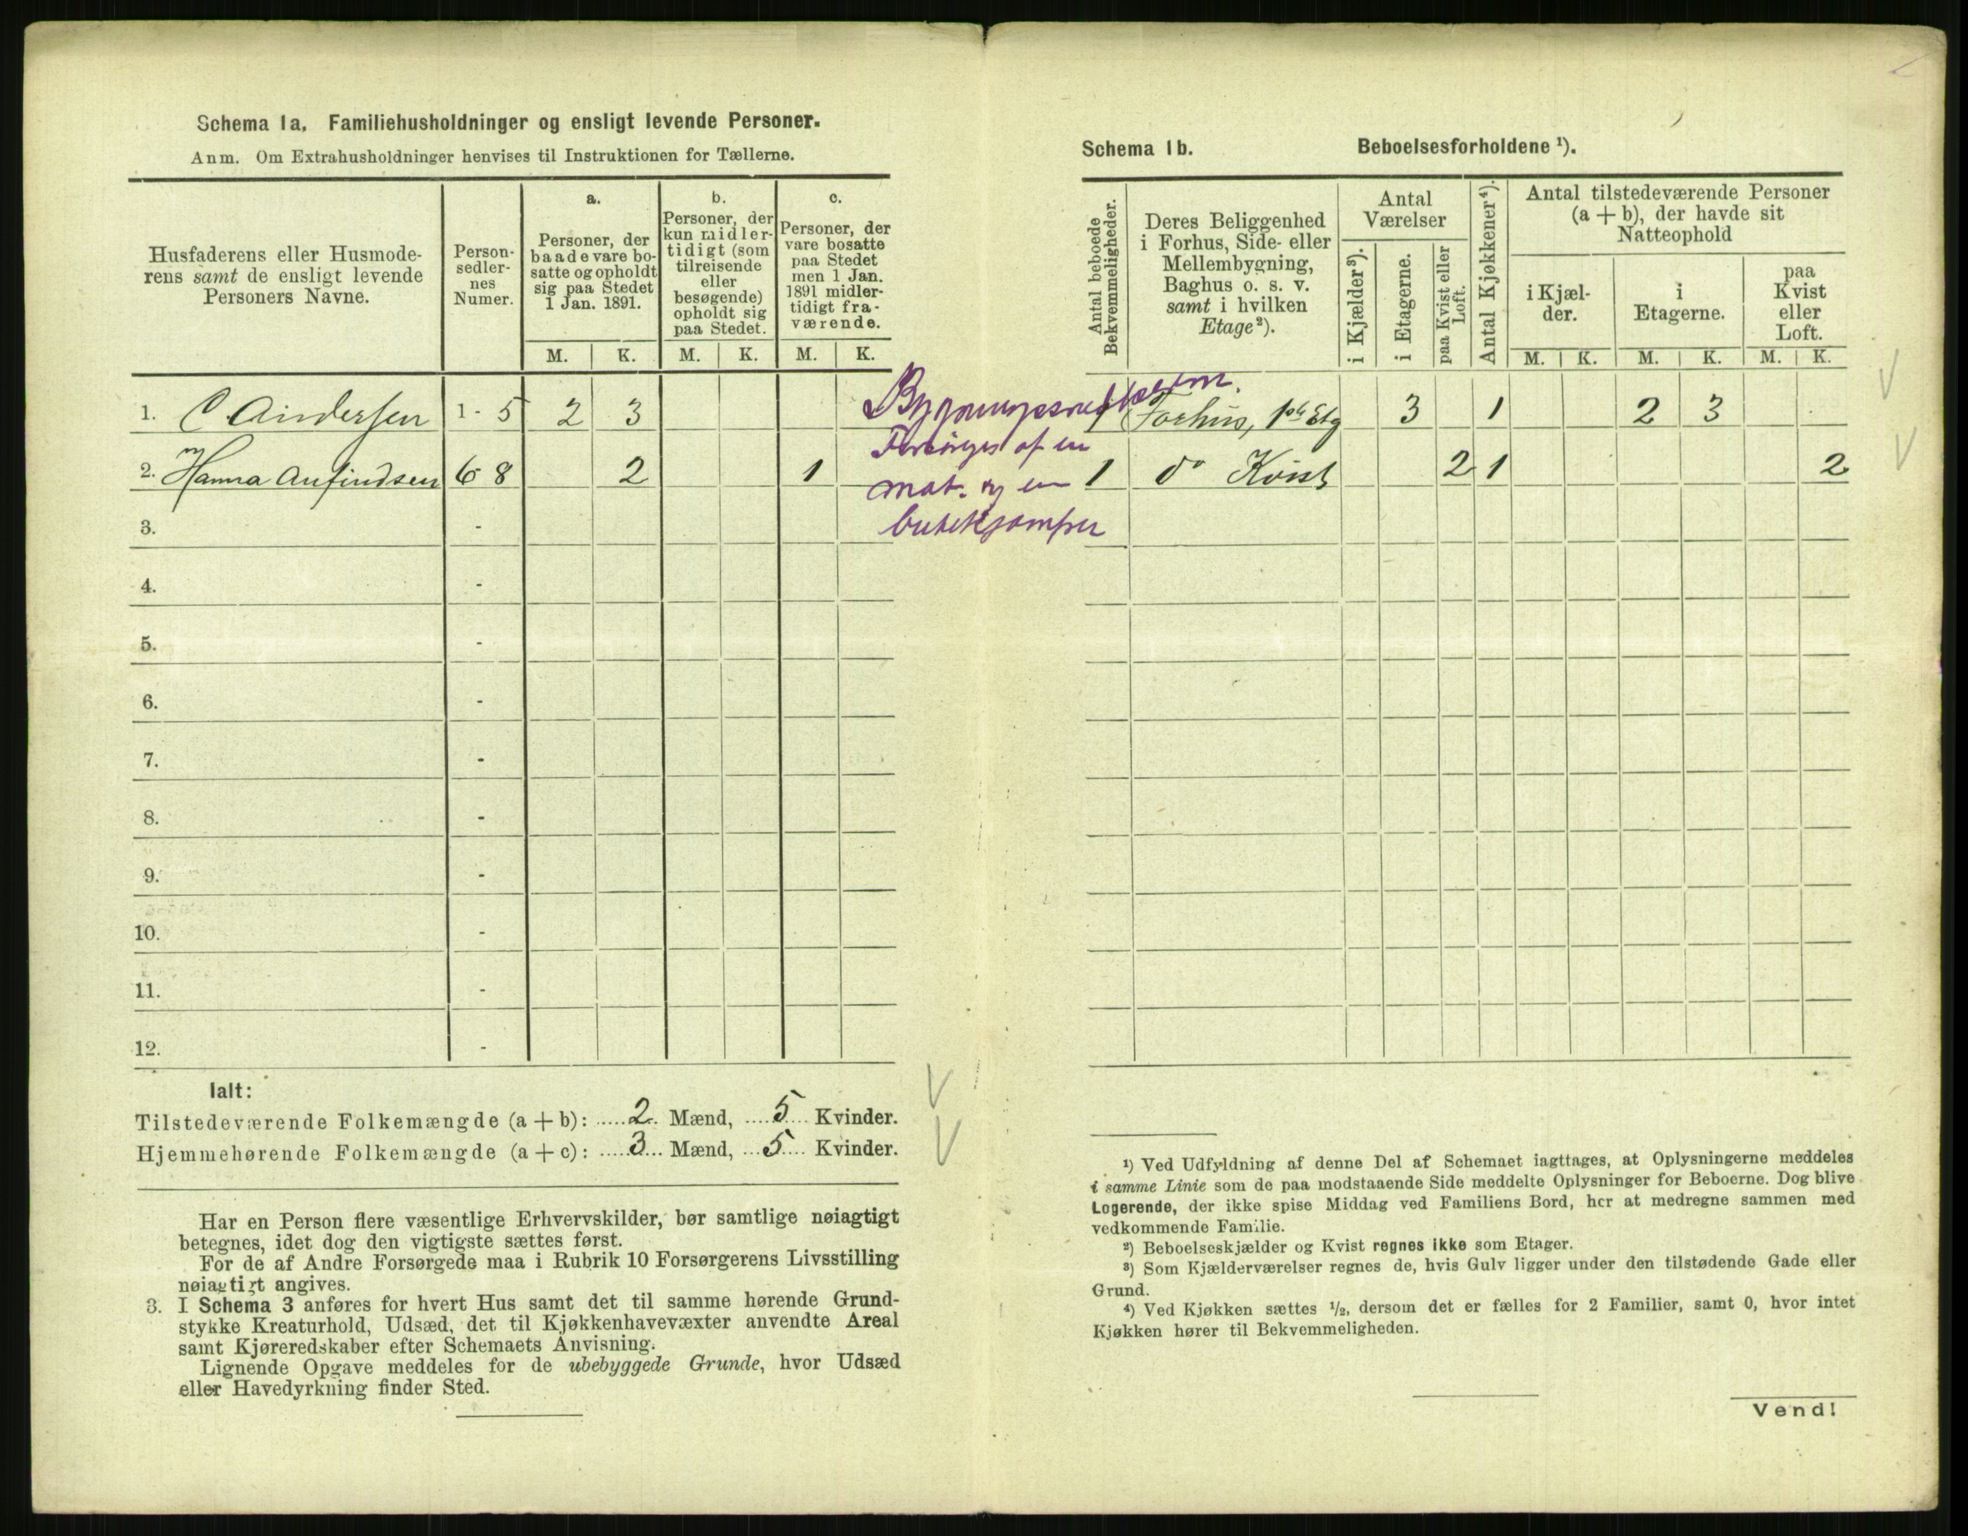 Schema 1a. Familiehusholdninger og ensligt levende Personer.
Anm. Om Extrahusholdninger henvises til Instruktionen for Tællerne.
Husfaderens eller Husmode-
rens samt de ensligt levende
Personers Navne.
Person-
sedler-
nes
Numer.
a.
Personer, der
baade vare bo-
satte og opholdt
sig paa Stedet
1 Jan. 1891.
b.
Personer, der
kun midler-
tidigt (som
tilreisende
eller
besøgende)
opholdt sig
paa Stedet.
c.
Personer, der
vare bosatte
paa Stedet
men 1 Jan.
1891 midler-
tidigt fra-
værende.
M. K. M. K. M. K.
1. C Andersen 1 - 5 2 3
2. Hanna Anfindsen 6 - 8 2 1
3. -
4. -
5. -
6. -
7. -
8. -
9. -
10. -
11. -
12. -
Forsørges af en
mat. og en
Ialt:
Tilstedeværende Folkemængde (a + b): 2 Mænd, 5 Kvinder.
Hjemmehørende Folkemængde (a + c): 3 Mænd, 5 Kvinder.
Har en Person flere væsentlige Erhvervskilder, bør samtlige nøiagtigt
betegnes, idet dog den vigtigste sættes først.
For de af Andre Forsørgede maa i Rubrik 10 Forsørgerens Livsstilling
nøiagtigt angives.
3. I Schema 3 anføres for hvert Hus samt det til samme hørende Grund-
stykke Kreaturhold, Udsæd, det til Kjøkkenhavevæxter anvendte Areal
samt Kjøreredskaber efter Schemaets Anvisning.
Lignende Opgave meddeles for de ubebyggede Grunde, hvor Udsæd
eller Havedyrkning finder Sted.
Schema 1b. Beboelsesforholdene ¹).
Antal beboede
Bekvemmeligheder.
Deres Beliggenhed
i Forhus, Side- eller
Mellembygning,
Baghus o. s. v.
samt i hvilken
Etage²).
Antal
Værelser
i Kjælder³).
i Etagerne.
paa Kvist eller
Loft.
Antal Kjøkkener⁴).
Antal tilstedeværende Personer
(a + b), der havde sit
Natteophold
i Kjæl-
der.
i
Etagerne.
paa
Kvist
eller
Loft.
M. K. M. K. M. K.
1 Forhus, 1ste Etg 3 1 2 3
1 do Kvist 2 1 2
¹) Ved Udfyldning af denne Del af Schemaet iagttages, at Oplysningerne meddeles
i samme Linie som de paa modstaaende Side meddelte Oplysninger for Beboerne. Dog blive
Logerende, der ikke spise Middag ved Familiens Bord, her at medregne sammen med
vedkommende Familie.
²) Beboelseskjælder og Kvist regnes ikke som Etager.
³) Som Kjælderværelser regnes de, hvis Gulv ligger under den tilstødende Gade eller
Grund.
⁴) Ved Kjøkken sættes ½, dersom det er fælles for 2 Familier, samt 0, hvor intet
Kjøkken hører til Bekvemmeligheden.
Vend!